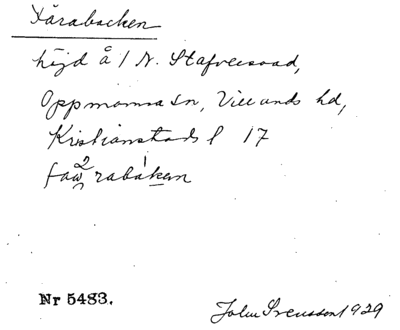 Xårabacken
höjd å / N. Stafversvad,
Oppmanna sn, Villands hd,
Kristianstads l 17
Nr 5483.
John Svensson 1929